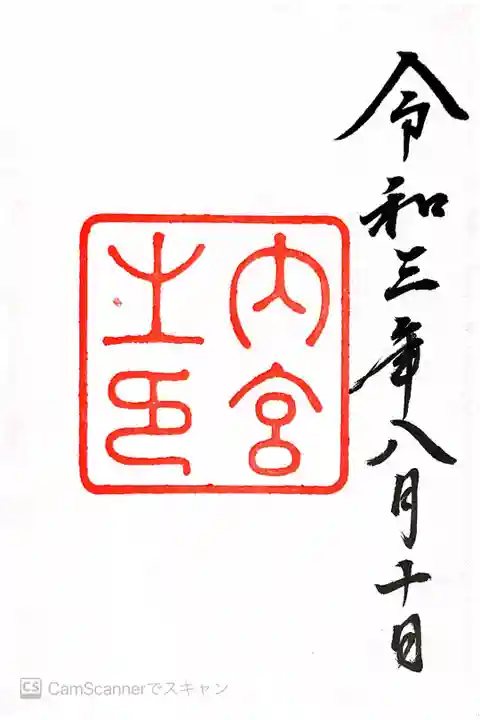 令和三年八月十日
内宮
之印
CS CamScannerでスキャン